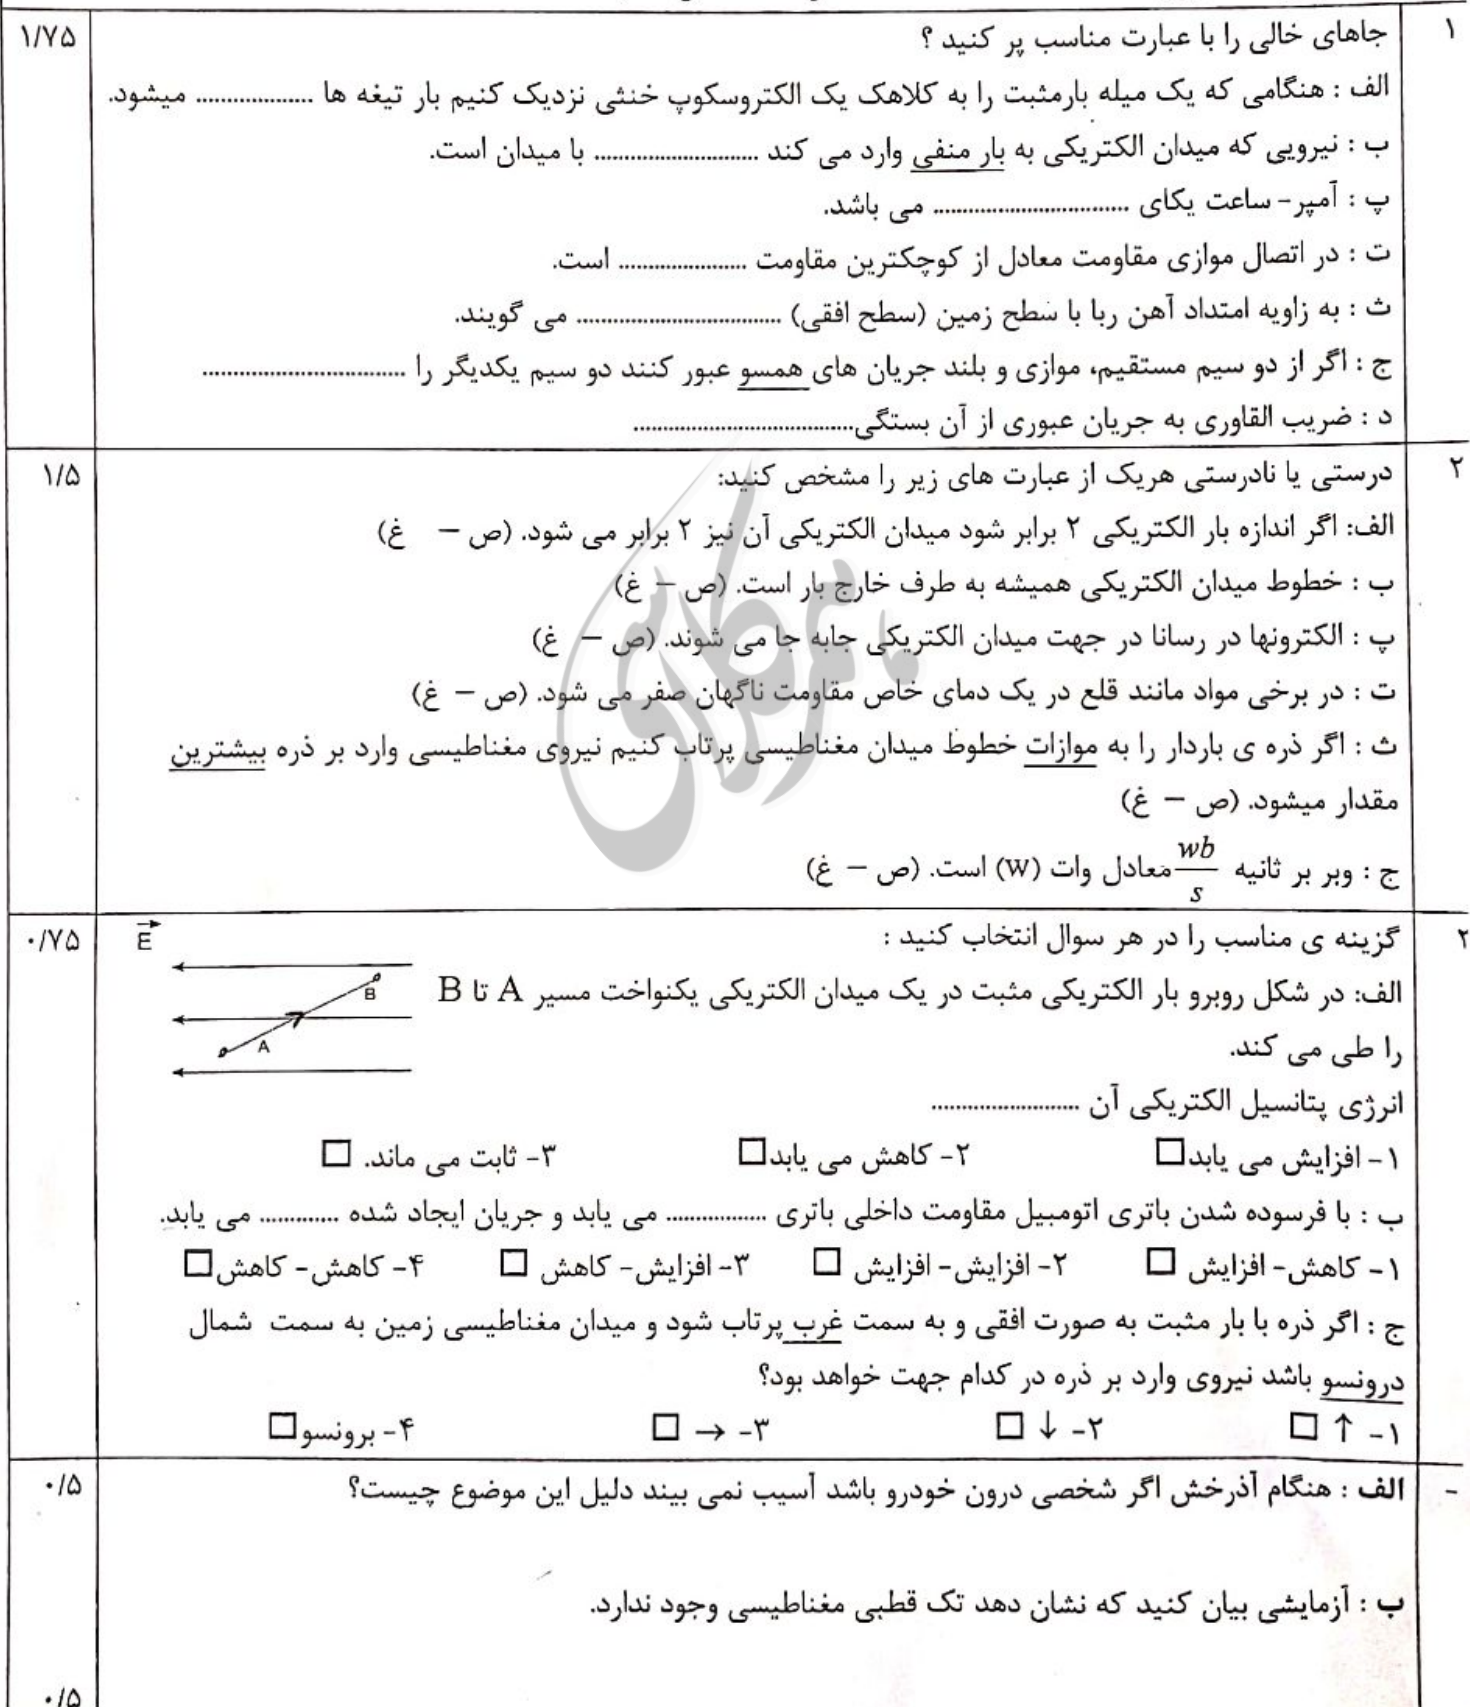 ۱ جاهای خالی را با عبارت مناسب پر کنید ؟ ۱/۷۵
الف : هنگامی که یک میله بارمثبت را به کلاهک یک الکتروسکوپ خنثی نزدیک کنیم بار تیغه ها .................... میشود.
ب : نیرویی که میدان الکتریکی به بار منفی وارد می کند ............................ با میدان است.
پ : آمپر- ساعت یکای ................................. می باشد.
ت : در اتصال موازی مقاومت معادل از کوچکترین مقاومت ...................... است.
ث : به زاویه امتداد آهن ربا با سطح زمین (سطح افقی) ................................... می گویند.
ج : اگر از دو سیم مستقیم، موازی و بلند جریان های همسو عبور کنند دو سیم یکدیگر را ...................................
د : ضریب القاوری به جریان عبوری از آن بستگی.....................................
۲ درستی یا نادرستی هریک از عبارت های زیر را مشخص کنید: ۱/۵
الف: اگر اندازه بار الکتریکی ۲ برابر شود میدان الکتریکی آن نیز ۲ برابر می شود. (ص – غ)
ب : خطوط میدان الکتریکی همیشه به طرف خارج بار است. (ص – غ)
پ : الکترونها در رسانا در جهت میدان الکتریکی جابه جا می شوند. (ص – غ)
ت : در برخی مواد مانند قلع در یک دمای خاص مقاومت ناگهان صفر می شود. (ص – غ)
ث : اگر ذره ی باردار را به موازات خطوط میدان مغناطیسی پرتاب کنیم نیروی مغناطیسی وارد بر ذره بیشترین
مقدار میشود. (ص – غ)
ج : وبر بر ثانیه wb/s معادل وات (W) است. (ص – غ)
۲ گزینه ی مناسب را در هر سوال انتخاب کنید : ۰/۷۵
E
B
A
الف: در شکل روبرو بار الکتریکی مثبت در یک میدان الکتریکی یکنواخت مسیر A تا B
را طی می کند.
انرژی پتانسیل الکتریکی آن .........................
۱- افزایش می یابد□ ۲- کاهش می یابد□ ۳- ثابت می ماند. □
ب : با فرسوده شدن باتری اتومبیل مقاومت داخلی باتری ................. می یابد و جریان ایجاد شده ............. می یابد.
۱- کاهش- افزایش □ ۲- افزایش- افزایش □ ۳- افزایش- کاهش □ ۴- کاهش- کاهش□
ج : اگر ذره با بار مثبت به صورت افقی و به سمت غرب پرتاب شود و میدان مغناطیسی زمین به سمت شمال
درونسو باشد نیروی وارد بر ذره در کدام جهت خواهد بود؟
۱- ↑ □ ۲- ↓ □ ۳- → □ ۴- برونسو□
- الف : هنگام آذرخش اگر شخصی درون خودرو باشد آسیب نمی بیند دلیل این موضوع چیست؟ ۰/۵
ب : آزمایشی بیان کنید که نشان دهد تک قطبی مغناطیسی وجود ندارد.
۰/۵